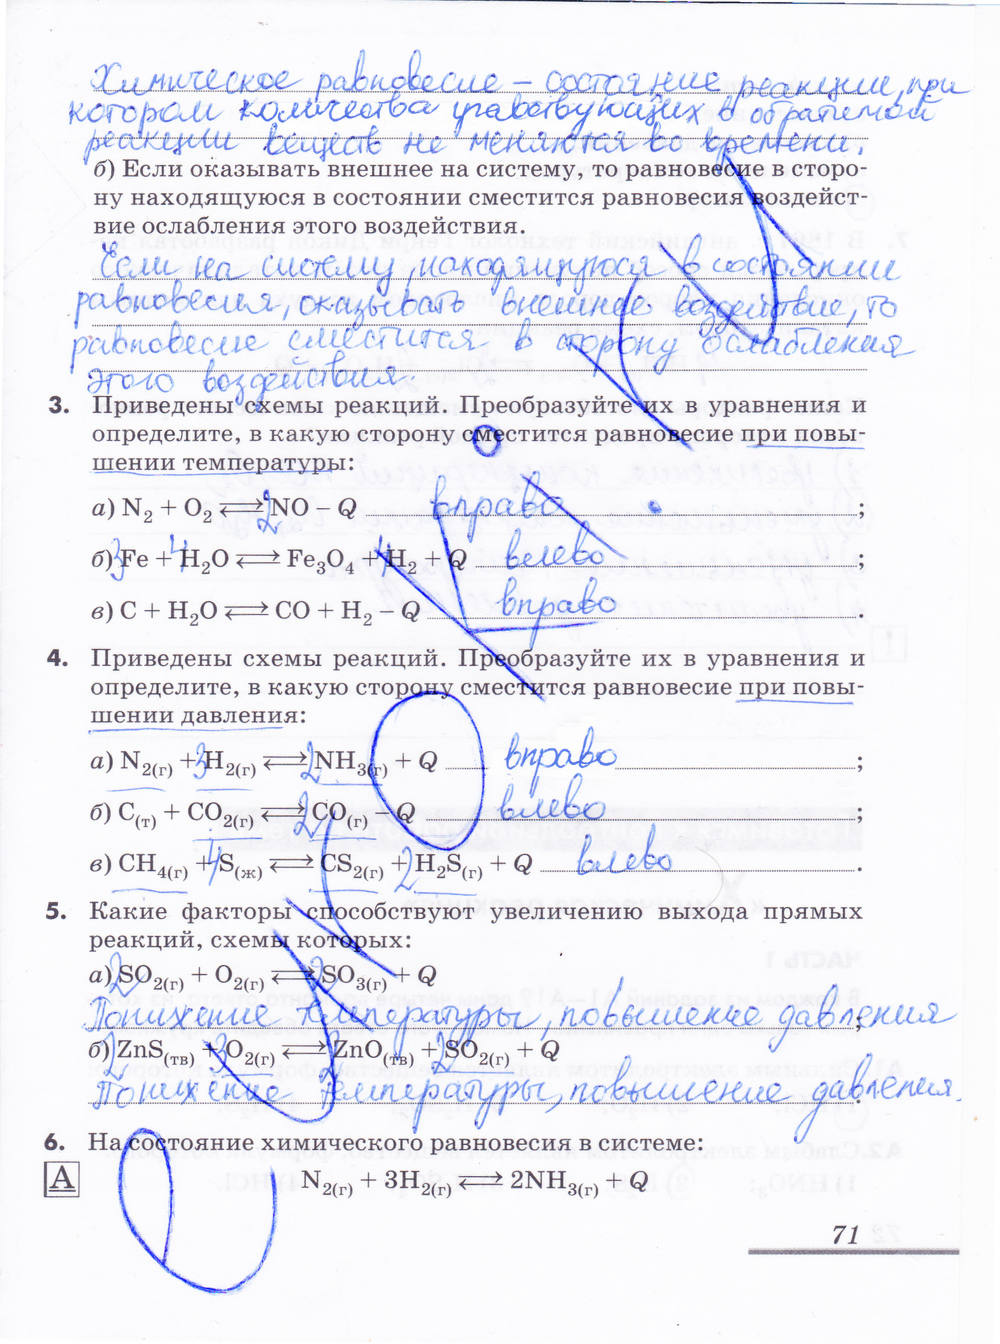 Химическое равновесие – состояние реакции, при
котором количества участвующих в обратимой
реакции веществ не меняются во времени.
б) Если оказывать внешнее на систему, то равновесие в сторо-
ну находящуюся в состоянии сместится равновесия воздейст-
вие ослабления этого воздействия.
Если на систему, находящуюся в состоянии
равновесия, оказывать внешнее воздействие, то
равновесие сместится в сторону ослабления
этого воздействия.
3. Приведены схемы реакций. Преобразуйте их в уравнения и
определите, в какую сторону сместится равновесие при повы-
шении температуры:
а) N₂ + O₂ ⇄ 2NO – Q вправо ;
б) 3Fe + 4H₂O ⇄ Fe₃O₄ + 4H₂ + Q влево ;
в) C + H₂O ⇄ CO + H₂ – Q вправо .
4. Приведены схемы реакций. Преобразуйте их в уравнения и
определите, в какую сторону сместится равновесие при повы-
шении давления:
а) N₂(г) + 3H₂(г) ⇄ 2NH₃(г) + Q вправо ;
б) C(т) + CO₂(г) ⇄ 2CO(г) – Q влево ;
в) CH₄(г) + 4S(ж) ⇄ CS₂(г) + 2H₂S(г) + Q влево .
5. Какие факторы способствуют увеличению выхода прямых
реакций, схемы которых:
а) 2SO₂(г) + O₂(г) ⇄ 2SO₃(г) + Q
Понижение температуры, повышение давления ;
б) 2ZnS(тв) + 3O₂(г) ⇄ 2ZnO(тв) + 2SO₂(г) + Q
Понижение температуры, повышение давления.
6. На состояние химического равновесия в системе:
А N₂(г) + 3H₂(г) ⇄ 2NH₃(г) + Q
71